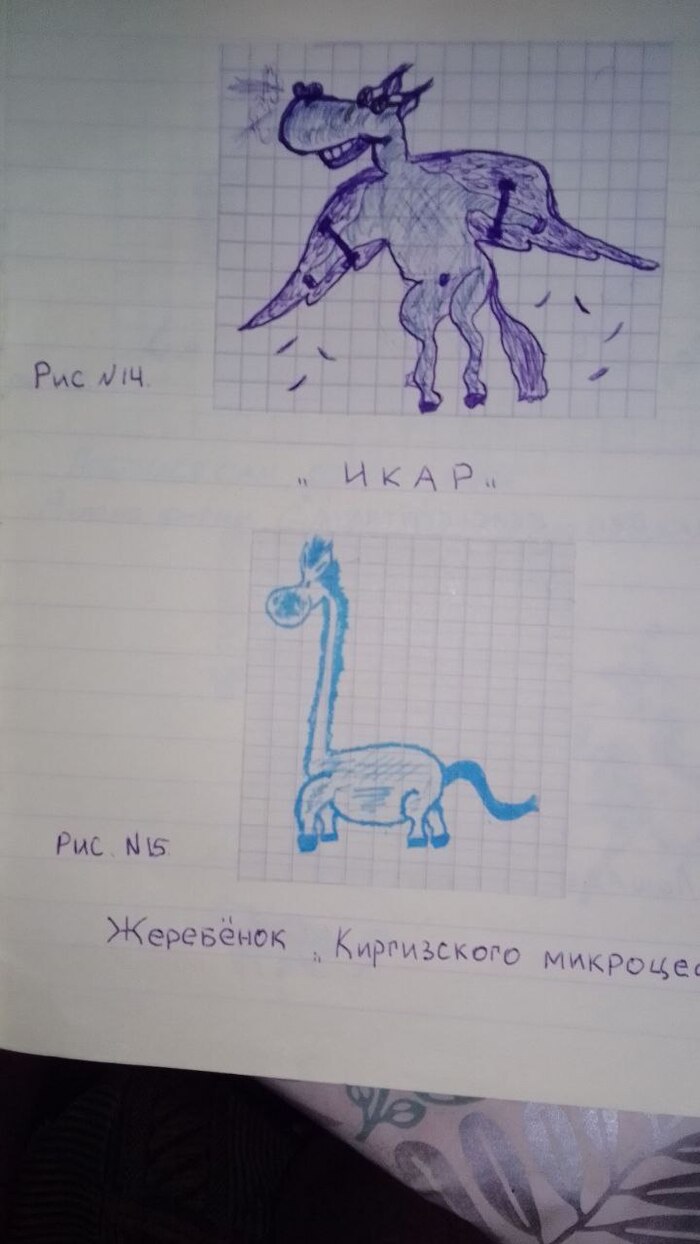 Рис №14.
„ ИКАР „
Рис. №15.
Жеребёнок „ Киргизского